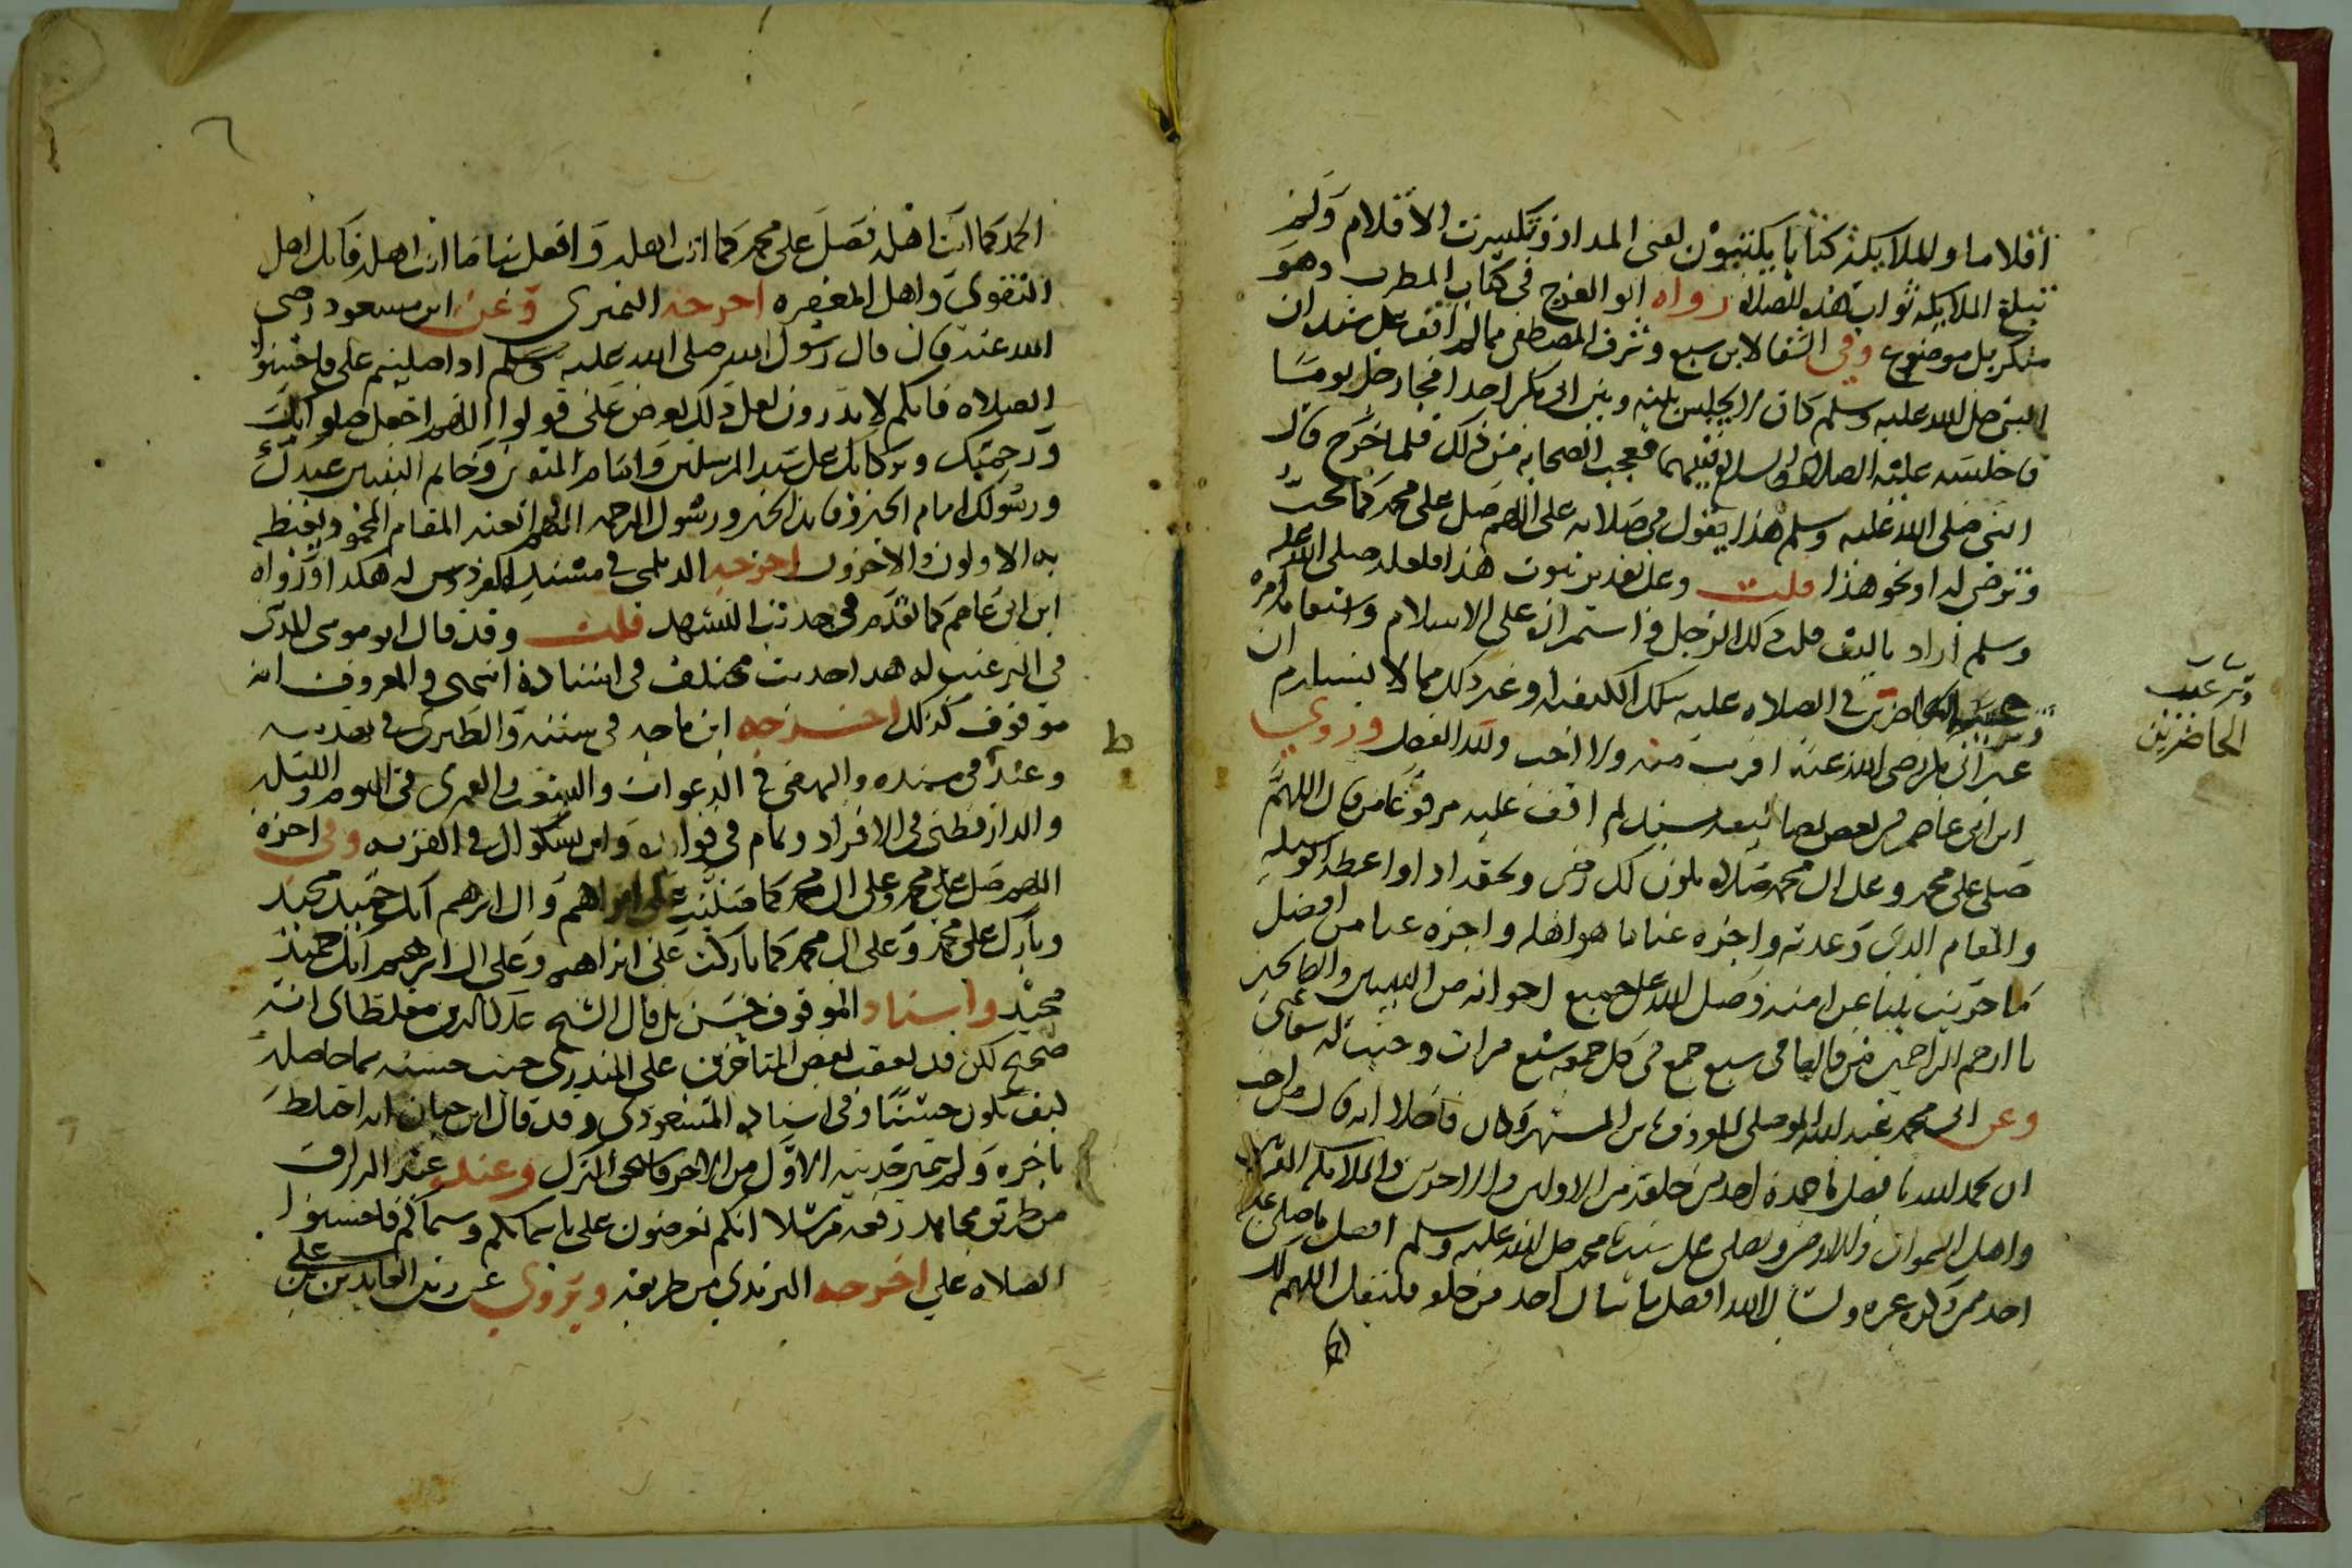 أقلاما وللملايكة كتابا يكتبون لفنى المداد وتكسرت الأقلام ولم
تبلغ الملايكة ثواب هذه الصلاة رواه ابو الفرج في كتاب المطرب وهو
منكر بل موضوع وفي الشفا لابن سبع وشرف المصطفى مما لم اقف على سنده ان
النبي صلى الله عليه وسلم كان لا يجلس بينه وبين ابي بكر احد فجا رجل يوما
فاجلسه عليه الصلاة والسلام بينهما فعجب الصحابة من ذلك فلما خرج قال
النبي صلى الله عليه وسلم هذا يقول في صلاته علي اللهم صل على محمد كما تحب
وترضى له او نحو هذا قلت وعلى تقدير ثبوت هذا فلعله صلى الله عليه
وسلم اراد تاليف قلب ذلك الرجل واستمراره على الاسلام
الحاضرين في الصلاة عليه بتلك الكيفية او غير ذلك مما لا يستلزم ان
غير ابي بكر رضي الله عنه اقرب منه ولا احب ولله الفضل وروي
ابن ابي عاصم في بعض تصانيفه بسند لم اقف عليه مرفوعا من قال اللهم
صلى على محمد وعلى ال محمد صلاة تكون لك رضى ولحقه اداء واعطه الوسيلة
والمقام الذي وعدته واجزه عنا ما هو اهله واجزه عنا من افضل
ما جزيت نبيا عن امته وصل على جميع اخوانه من النبيين والصالحين
يا ارحم الراحمين من قالها في سبع جمع في كل جمعة سبع مرات وجبت له شفاعتي
وعن ابي محمد عبد الله الموصلي المعروف بابن المشتهر وكان فاضلا انه قال من احب
ان يحمد الله بافضل ما حمده احد من خلقه من الاولين والاخرين والملايكة المقربين
واهل السموات والارض ويصلي على سيدنا محمد صلى الله عليه وسلم افضل ما صلى عليه
احد ممن ذكره غيره ويسال الله افضل ما سال احد من خلقه فليقل اللهم لك
وترغيب
الحاضرين
٦
الحمد كما انت اهله فصل على محمد كما انت اهله وافعل بنا ما انت اهله فانك اهل
التقوى واهل المغفرة اخرجه النميري وعن ابن مسعود رضي
الله عنه قال قال رسول الله صلى الله عليه وسلم اذا صليتم علي فاحسنوا
الصلاة فانكم لا تدرون لعل ذلك يعرض علي قولوا اللهم اجعل صلواتك
ورحمتك وبركاتك على سيد المرسلين وامام المتقين وخاتم النبيين عبدك
ورسولك امام الخير وقايد الخير ورسول الرحمة اللهم ابعثه المقام المحمود يغبطه
به الاولون والاخرون اخرجه الديلمي في مسند الفردوس له هكذا ورواه
ابن ابي عاصم كما تقدم في حديث التشهد قلت وقد قال ابو موسى المديني
في الترغيب له هذا حديث مختلف في اسناده انتهى والمعروف انه
موقوف كذلك اخرجه ابن ماجه في سننه والطبري في تهذيبه
وعبد في مسنده والبيهقي في الدعوات والشعب والمعمري في اليوم والليلة
والدارقطني في الافراد وتمام في فوائده وابن بشكوال في القربه وفي اخره
اللهم صل على محمد وعلى ال محمد كما صليت على ابراهيم وال ابرهيم انك حميد مجيد
وبارك على محمد وعلى ال محمد كما باركت على ابراهيم وعلى ال ابرهيم انك حميد
مجيد واسناد الموقوف حسن بل قال الشيخ علا الدين مغلطاي انه
صحيح لكن قد تعقب بعض المتاخرين على المنذري حيث حسنه بما حاصله
كيف يكون حسنا وفي اسناده المسعودي وقد قال ابن حبان انه اختلط
باخره ولم يتميز حديثه الاول من الاخر فاستحق الترك وعند عبد الرزاق
من طريق مجاهد رفعه مرسلا انكم تعرضون علي باسمائكم وسيماكم فاحسنوا
الصلاة علي اخرجه النميري من طريقه ويروى عن زين العابدين علي بن
ط